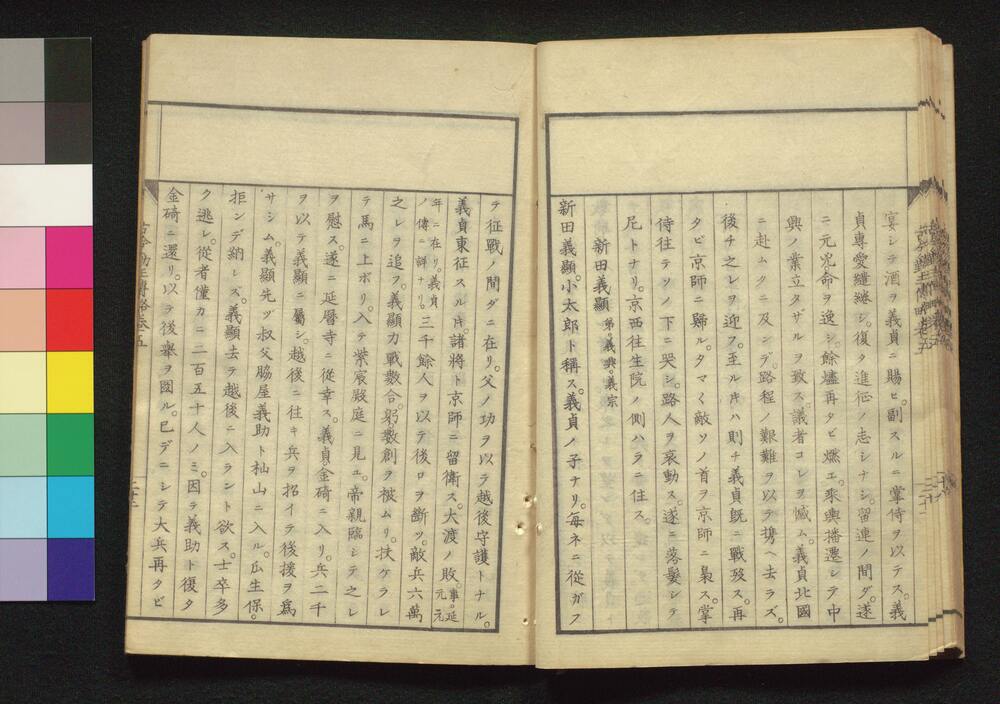 宴シテ酒ヲ義貞ニ賜ヒ。副スルニ掌侍ヲ以テス。義
貞專愛繾綣シ。復タ進征ノ志シナシ。留連ノ間ダ。遂
ニ元兇命ヲ逸シ。餘燼再タビ燃エ。乘輿播遷シテ中
興ノ業立タザルヲ致ス。議者コレヲ憾ム。義貞北國
ニ赴ムクニ及ンデ。路程ノ艱難ヲ以テ攜ヘ去ラズ。
後チ之レヲ迎フ。至ル𪜈ハ則チ義貞既ニ戰歿ス。再
タビ京師ニ歸ル。タマ〱敵ソノ首ヲ京師ニ梟ス。掌
侍往テソノ下ニ哭シ。路人ヲ哀動ス。遂ニ落髮シテ
尼トナリ。京西往生院ノ側ハラニ住ス。
新田義顯 弟。義興。義宗
新田義顯。小太郎ト稱ス。義貞ノ子ナリ。毎ネニ從ガフ
テ征戰ノ間ダニ在リ。父ノ功ヲ以テ越後守護トナル。
義貞東征スル片。諸將ト京師ニ留衛ス。大渡ノ敗。事。延元元
年ニ在リ。義貞ノ傳ニ詳ナリ。三千餘人ヲ以テ後ロヲ斷ツ。敵兵六萬
之レヲ追フ。義顯力戰數合。躬數創ヲ被ムリ。扶ケラレ
テ馬ニ上ボリ。入テ紫宸殿庭ニ見エ。帝親臨シテ之レ
ヲ慰ス。遂ニ延曆寺ニ從幸ス。義貞。金碕ニ入リ。兵二千
ヲ以テ義顯ニ屬シ。越後ニ往キ兵ヲ招イテ後援ヲ爲
サシム。義顯先ヅ叔父脇屋義助ト杣山ニ入ル。瓜生保。
拒ンデ納レズ。義顯去テ越後ニ入ラント欲ス。士卒多
ク逃レ。從者僅カニ二百五十人ノミ。因テ義助ト復タ
金碕ニ還リ。以テ後擧ヲ圖ル。已デニシテ大兵再タビ